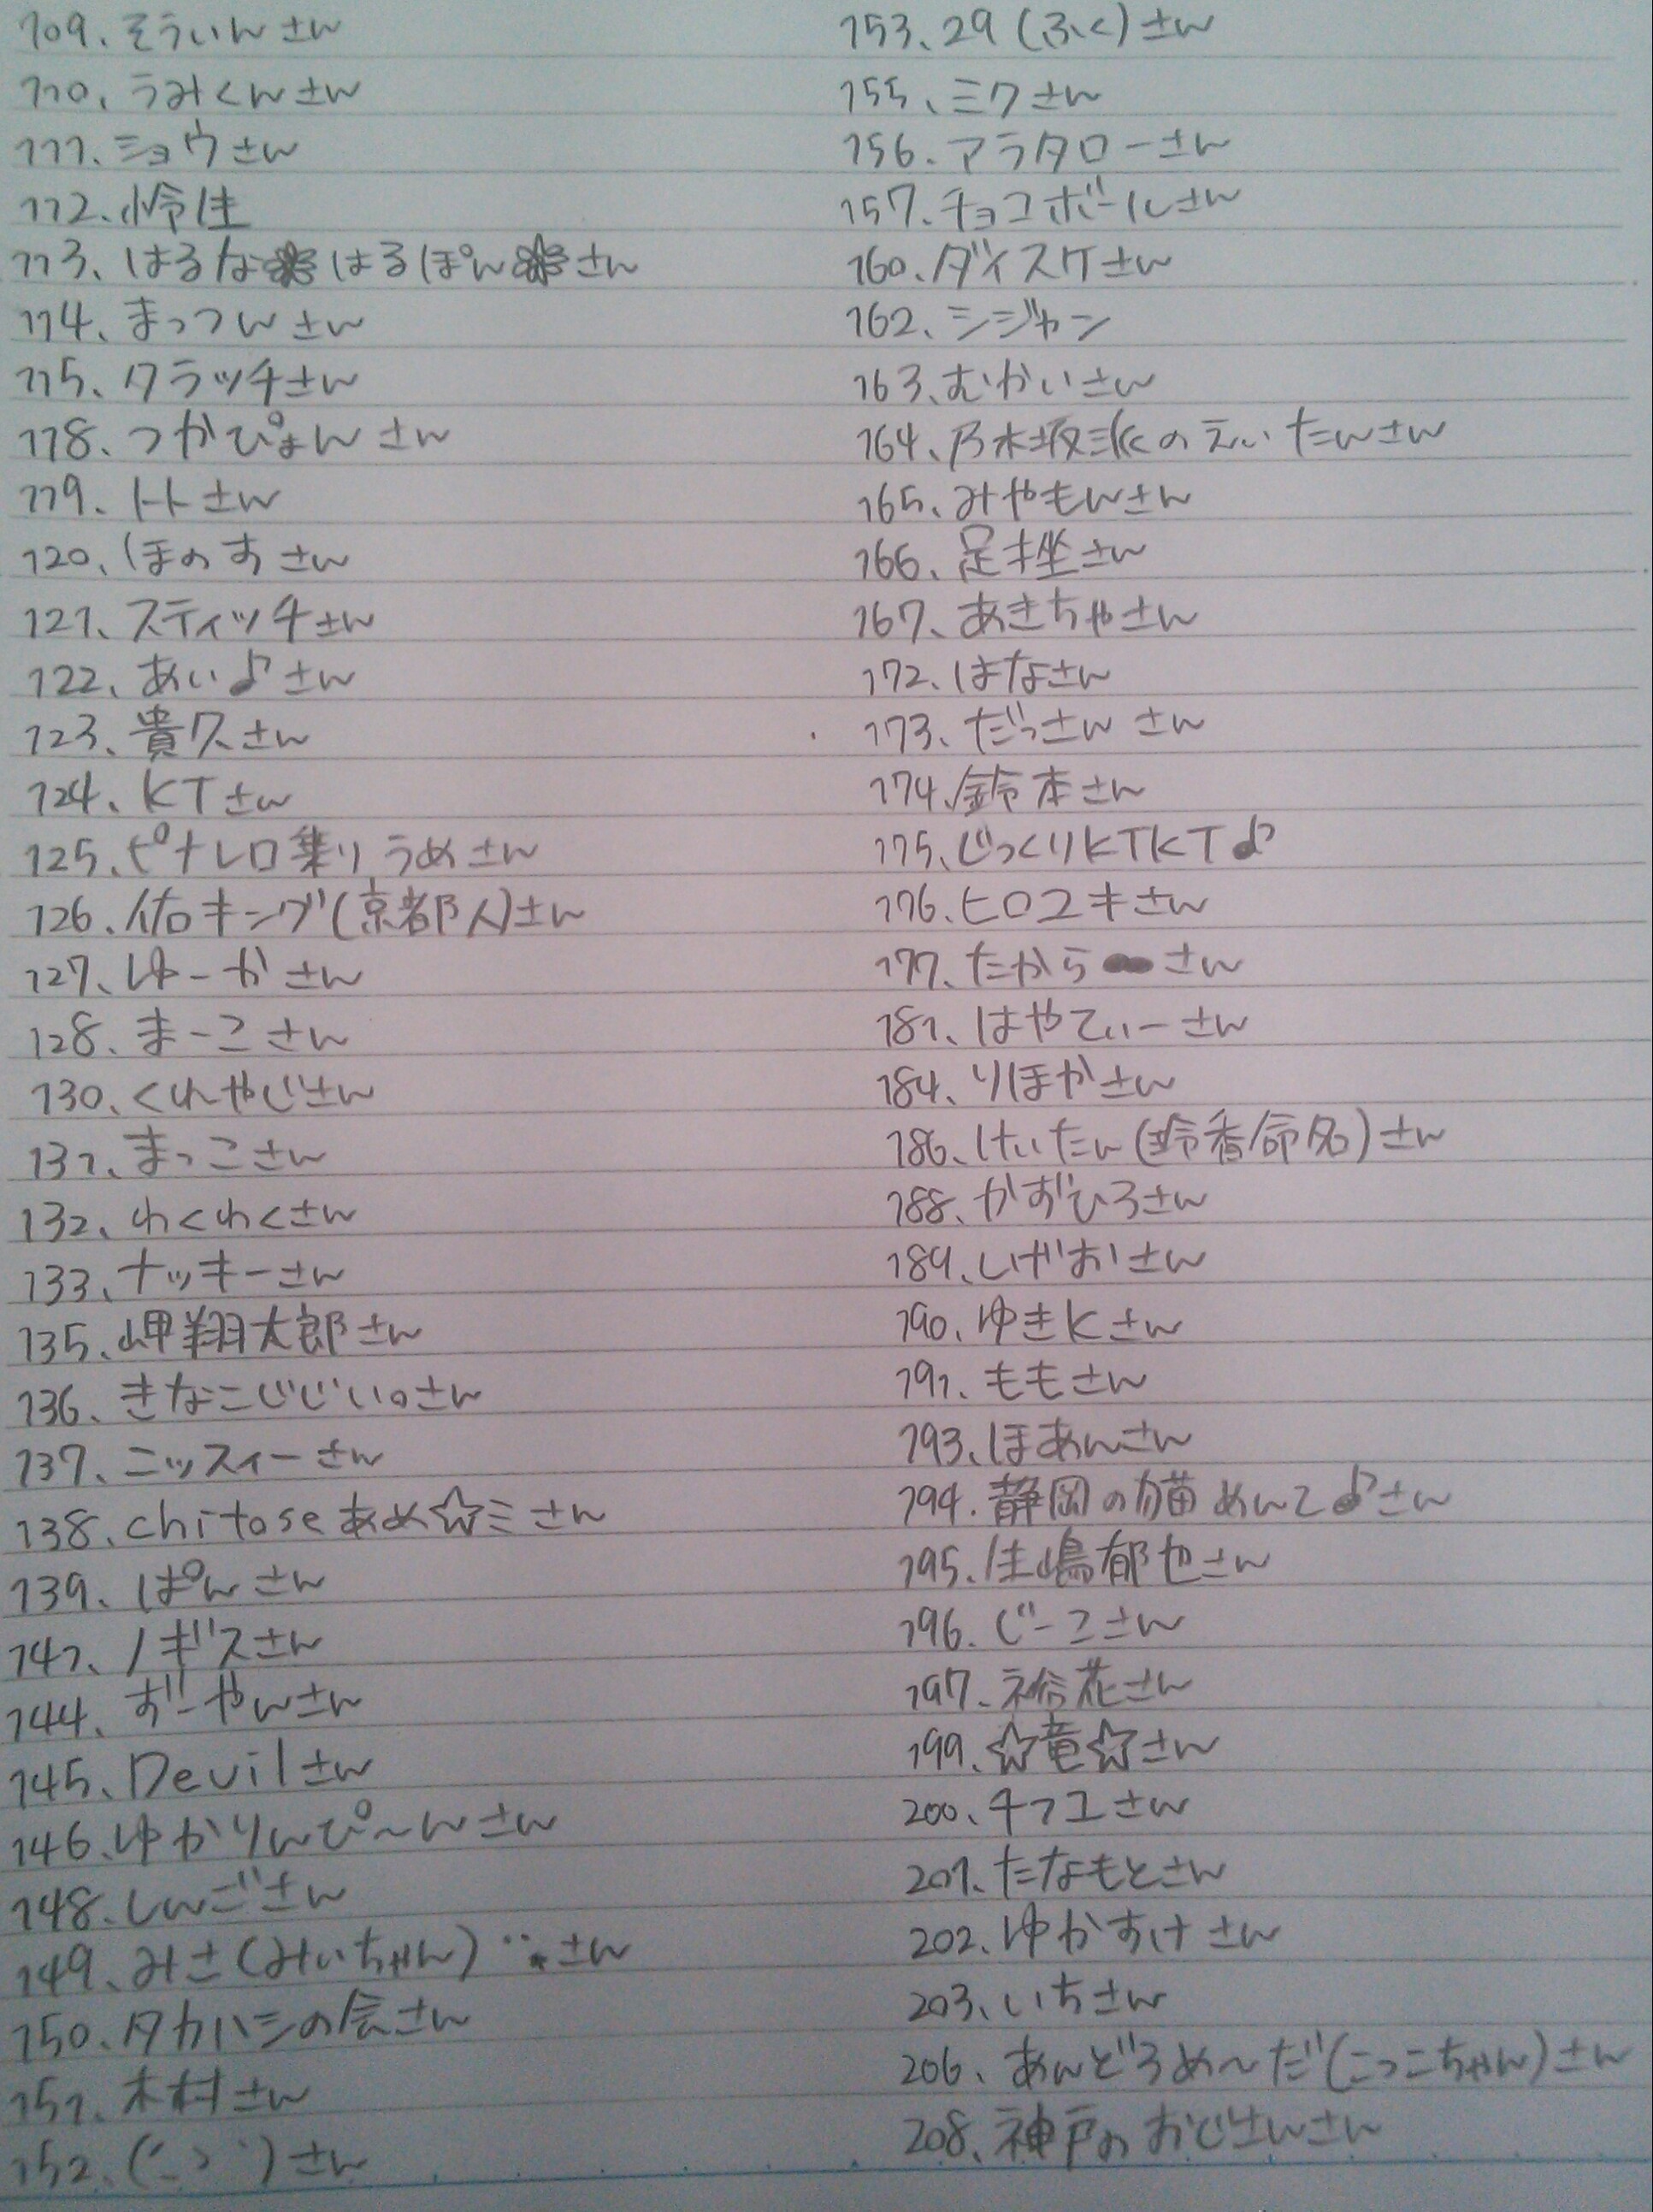 109、そういんさん
110、うみくんさん
111、ショウさん
112、怜佳
113、はるな❀はるぽん❀さん
114、まっつんさん
115、クラッチさん
118、つかぴょんさん
119、トトさん
120、ほのすさん
121、スティッチさん
122、あい♪さん
123、貴久さん
124、KTさん
125、ピナレロ乗りうめさん
126、佑キング(京都人)さん
127、ゆーかさん
128、まーこさん
130、くれやじさん
131、まっこさん
132、わくわくさん
133、ナッキーさん
135、岬翔太郎さん
136、きなこじじい。さん
137、ニッスィーさん
138、chitoseあめ☆ミさん
139、ぱんさん
141、ノギスさん
144、ずーやんさん
145、Devilさん
146、ゆかりんぴ〜んさん
148、しんごさん
149、みさ(みぃちゃん)さん
150、タカハシの会さん
151、木村さん
152、さん
153、29(ふく)さん
155、ミクさん
156、アラタローさん
157、チョコボールさん
160、ダイスケさん
162、シジャン
163、むかいさん
164、乃木坂派のえいたんさん
165、みやもんさん
166、足挫さん
167、あきちゃさん
172、はなさん
173、だっさんさん
174、鈴本さん
175、じっくりKTKT♪
176、ヒロユキさん
177、たからさん
181、はやてぃーさん
184、りほかさん
186、けいたん(玲香命名)さん
188、かずひろさん
189、しげおiさん
190、ゆきKさん
191、ももさん
193、ほあんさん
194、静岡の猫めんて♪さん
195、生嶋郁也さん
196、じーこさん
197、裕花さん
199、☆竜☆さん
200、チフユさん
201、たなもとさん
202、ゆかすけさん
203、いちさん
206、あんどろめ〜だ(こっこちゃん)さん
208、神戸のおじさんさん